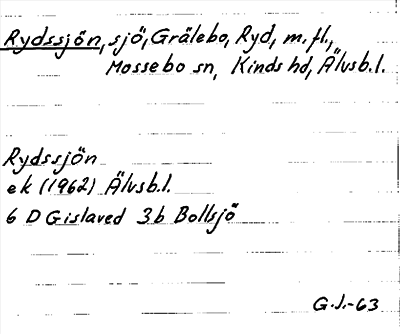 Rydssjön, sjö, Grälebo, Ryd, m.fl.,
Mossebo sn, Kinds hd, Älvsb.l.
Rydssjön
ek (1962) Älvsb.l.
6 D Gislaved 3b Bollsjö
G.J.-63